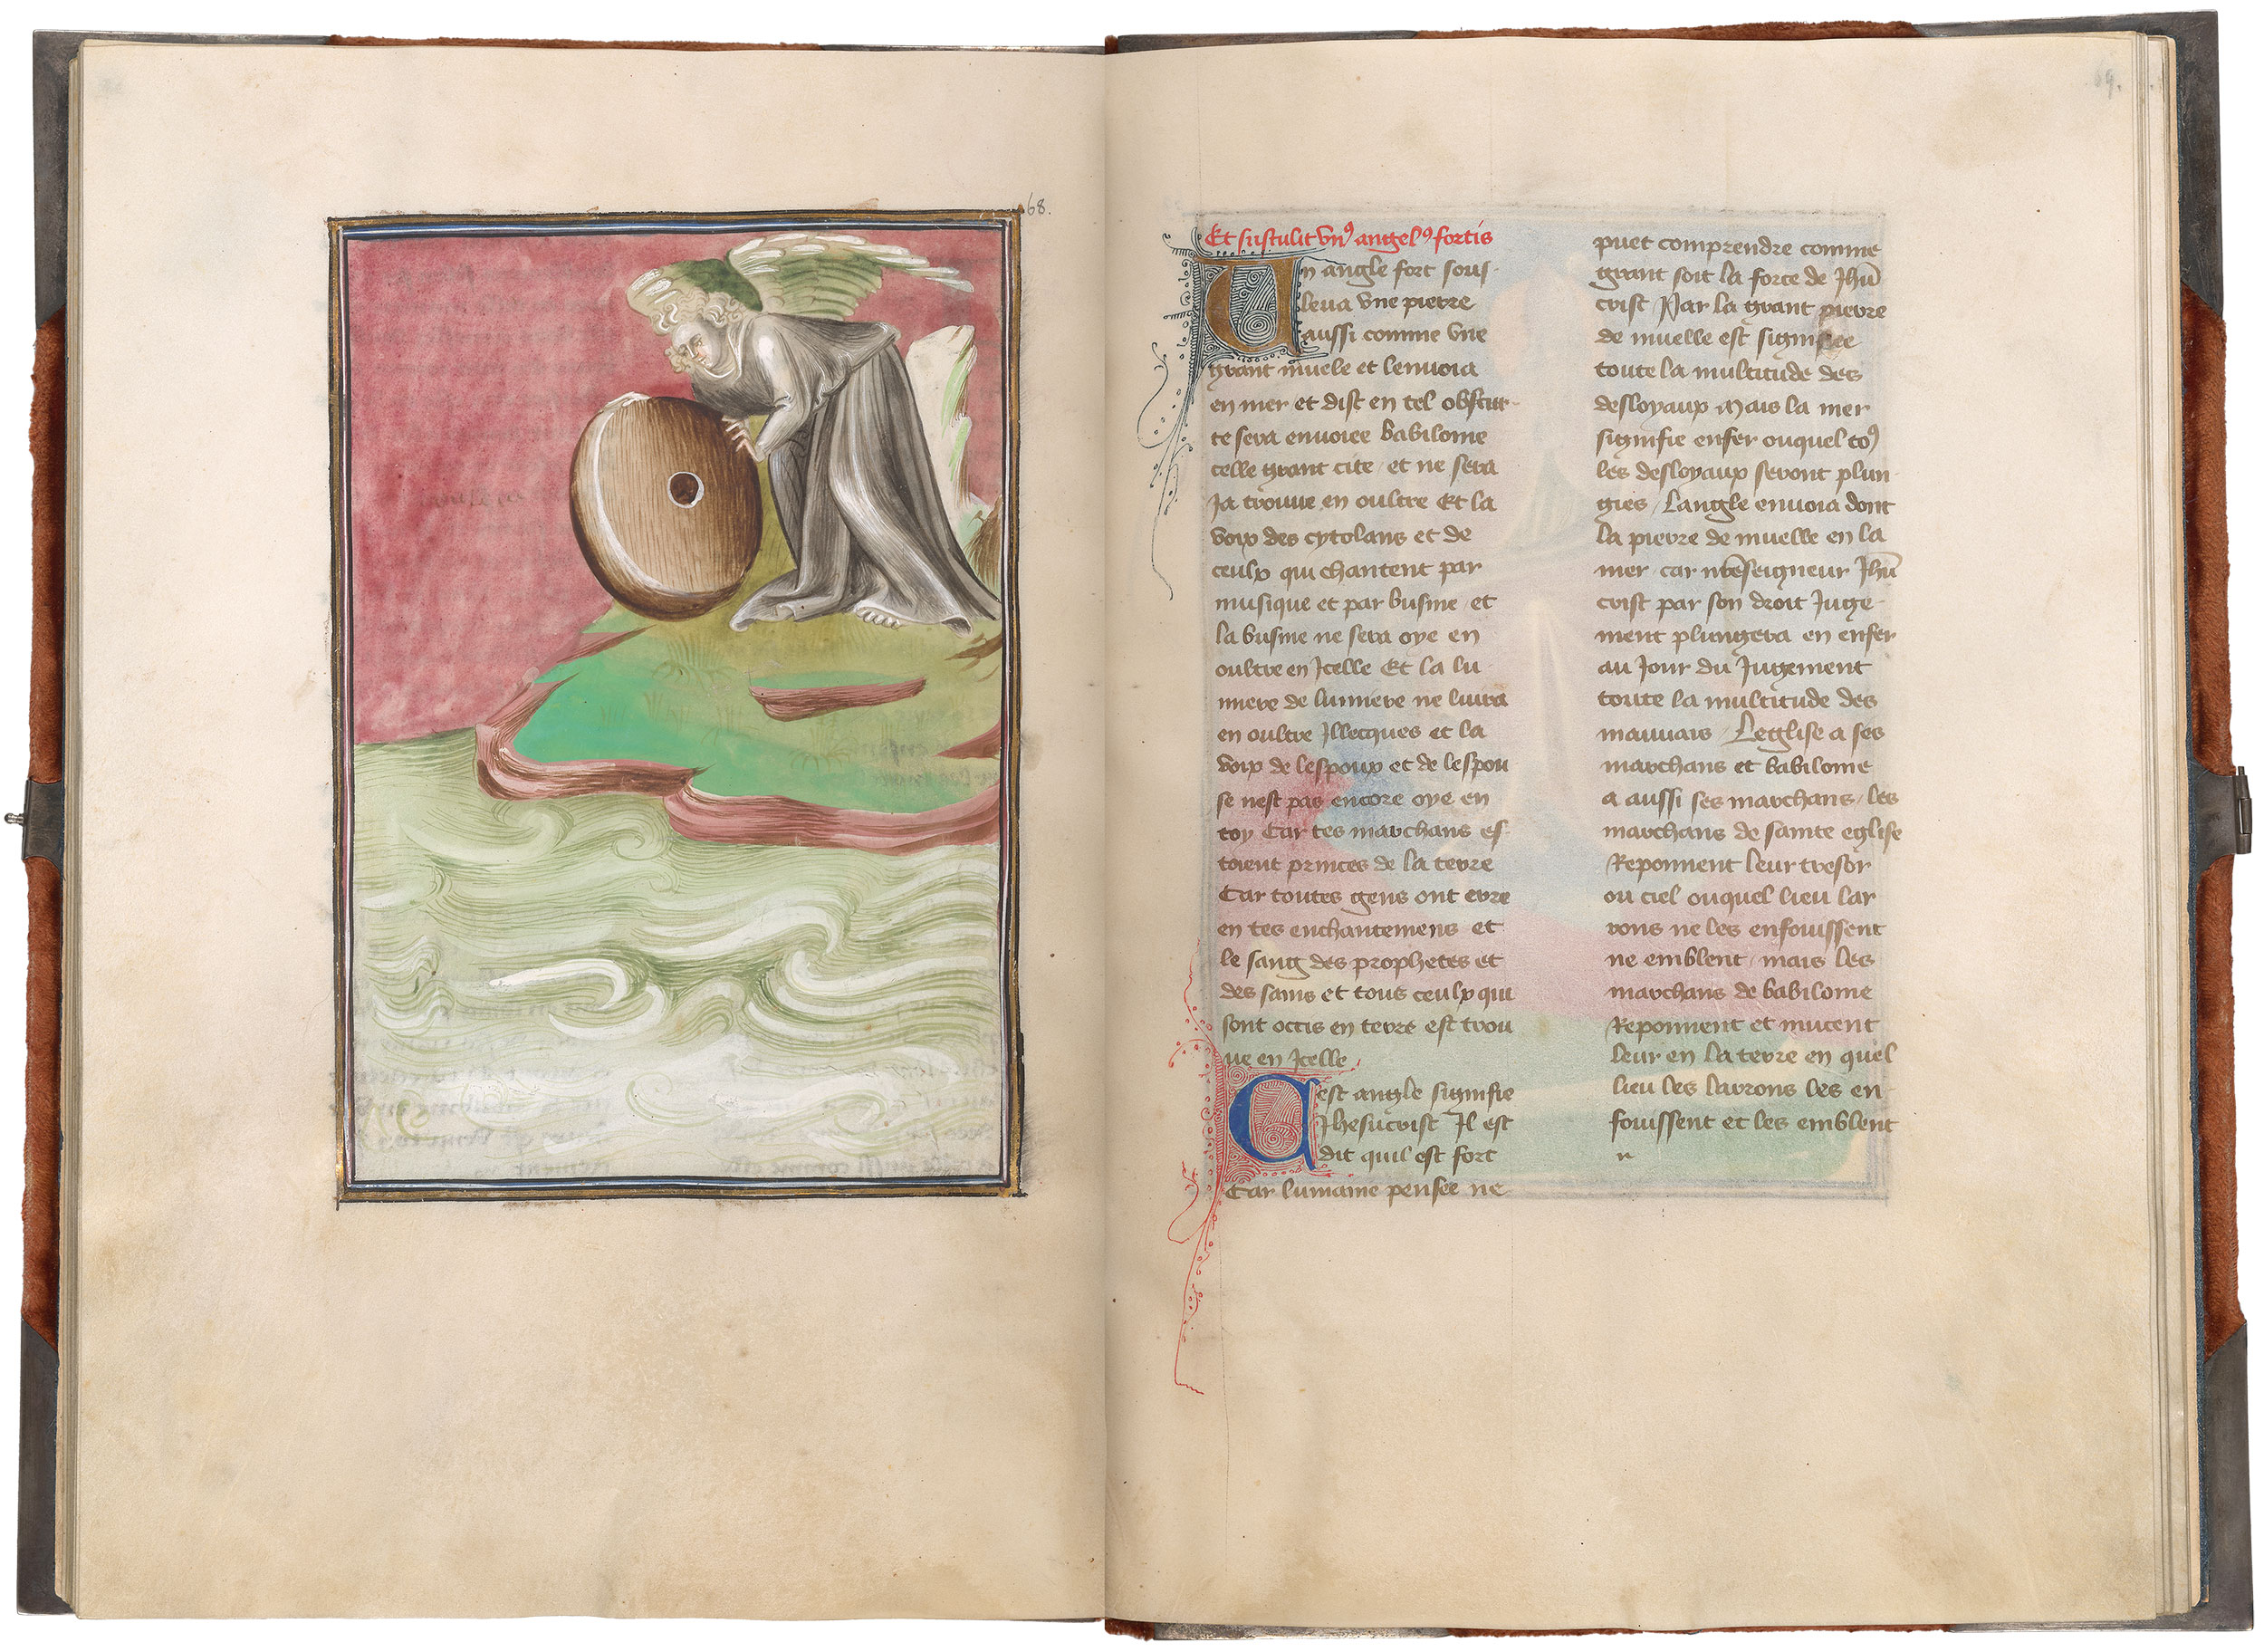 68.
69.
Et sustulit vn⁹ angel⁹ fortis
Un angle fort sous-
leua vne pierre
aussi comme vne
grant muele et lenuoia
en mer et dist en tel obscur-
te sera enuoiee babilome
celle grant cite et ne sera
Ja trouue en oultre Et la
voix des cytolans et de
ceulx qui chantent par
musique et par busine et
la busine ne sera oye en
oultre en Jcelle Et la lu-
miere de lumiere ne luira
en oultre Jllecques et la
voix de lespoux et de lespou
se nest pas encore oye en
toy Car tes marchans es-
toient princes de la terre
Car toutes gens ont erre
en tes enchantemens et
le sang des prophetes et
des sains et tous ceulx qui
sont occis en terre est trou
ue en Jcelle
Cest angle signifie
Jhesucrist Jl est
dit quil est fort
Car lumaine pensee ne
puet comprendre comme
grant soit la force de Jhu̅
crist Par la grant pierre
de muelle est signifiee
toute la multitude des
desloyaux Mais la mer
signifie enfer ouquel to⁹
les desloyaux seront plun
gies / Langle enuoia dont
la pierre de muelle en la
mer car nr̅eseigneur Jhu̅
crist par son droit Juge-
ment plungera en enfer
au Jour du Jugement
toute la multitude des
mauuais / Leglise a ses
marchans et babilome
a aussi ses marchans / les
marchans de sainte eglise
Reponnent leur tresor
ou ciel ouquel lieu lar
rons ne les enfouissent
ne emblent / mais les
marchans de babilome
Reponnent et mucent
leur en la terre en quel
lieu les larrons les en-
fouissent et les emblent